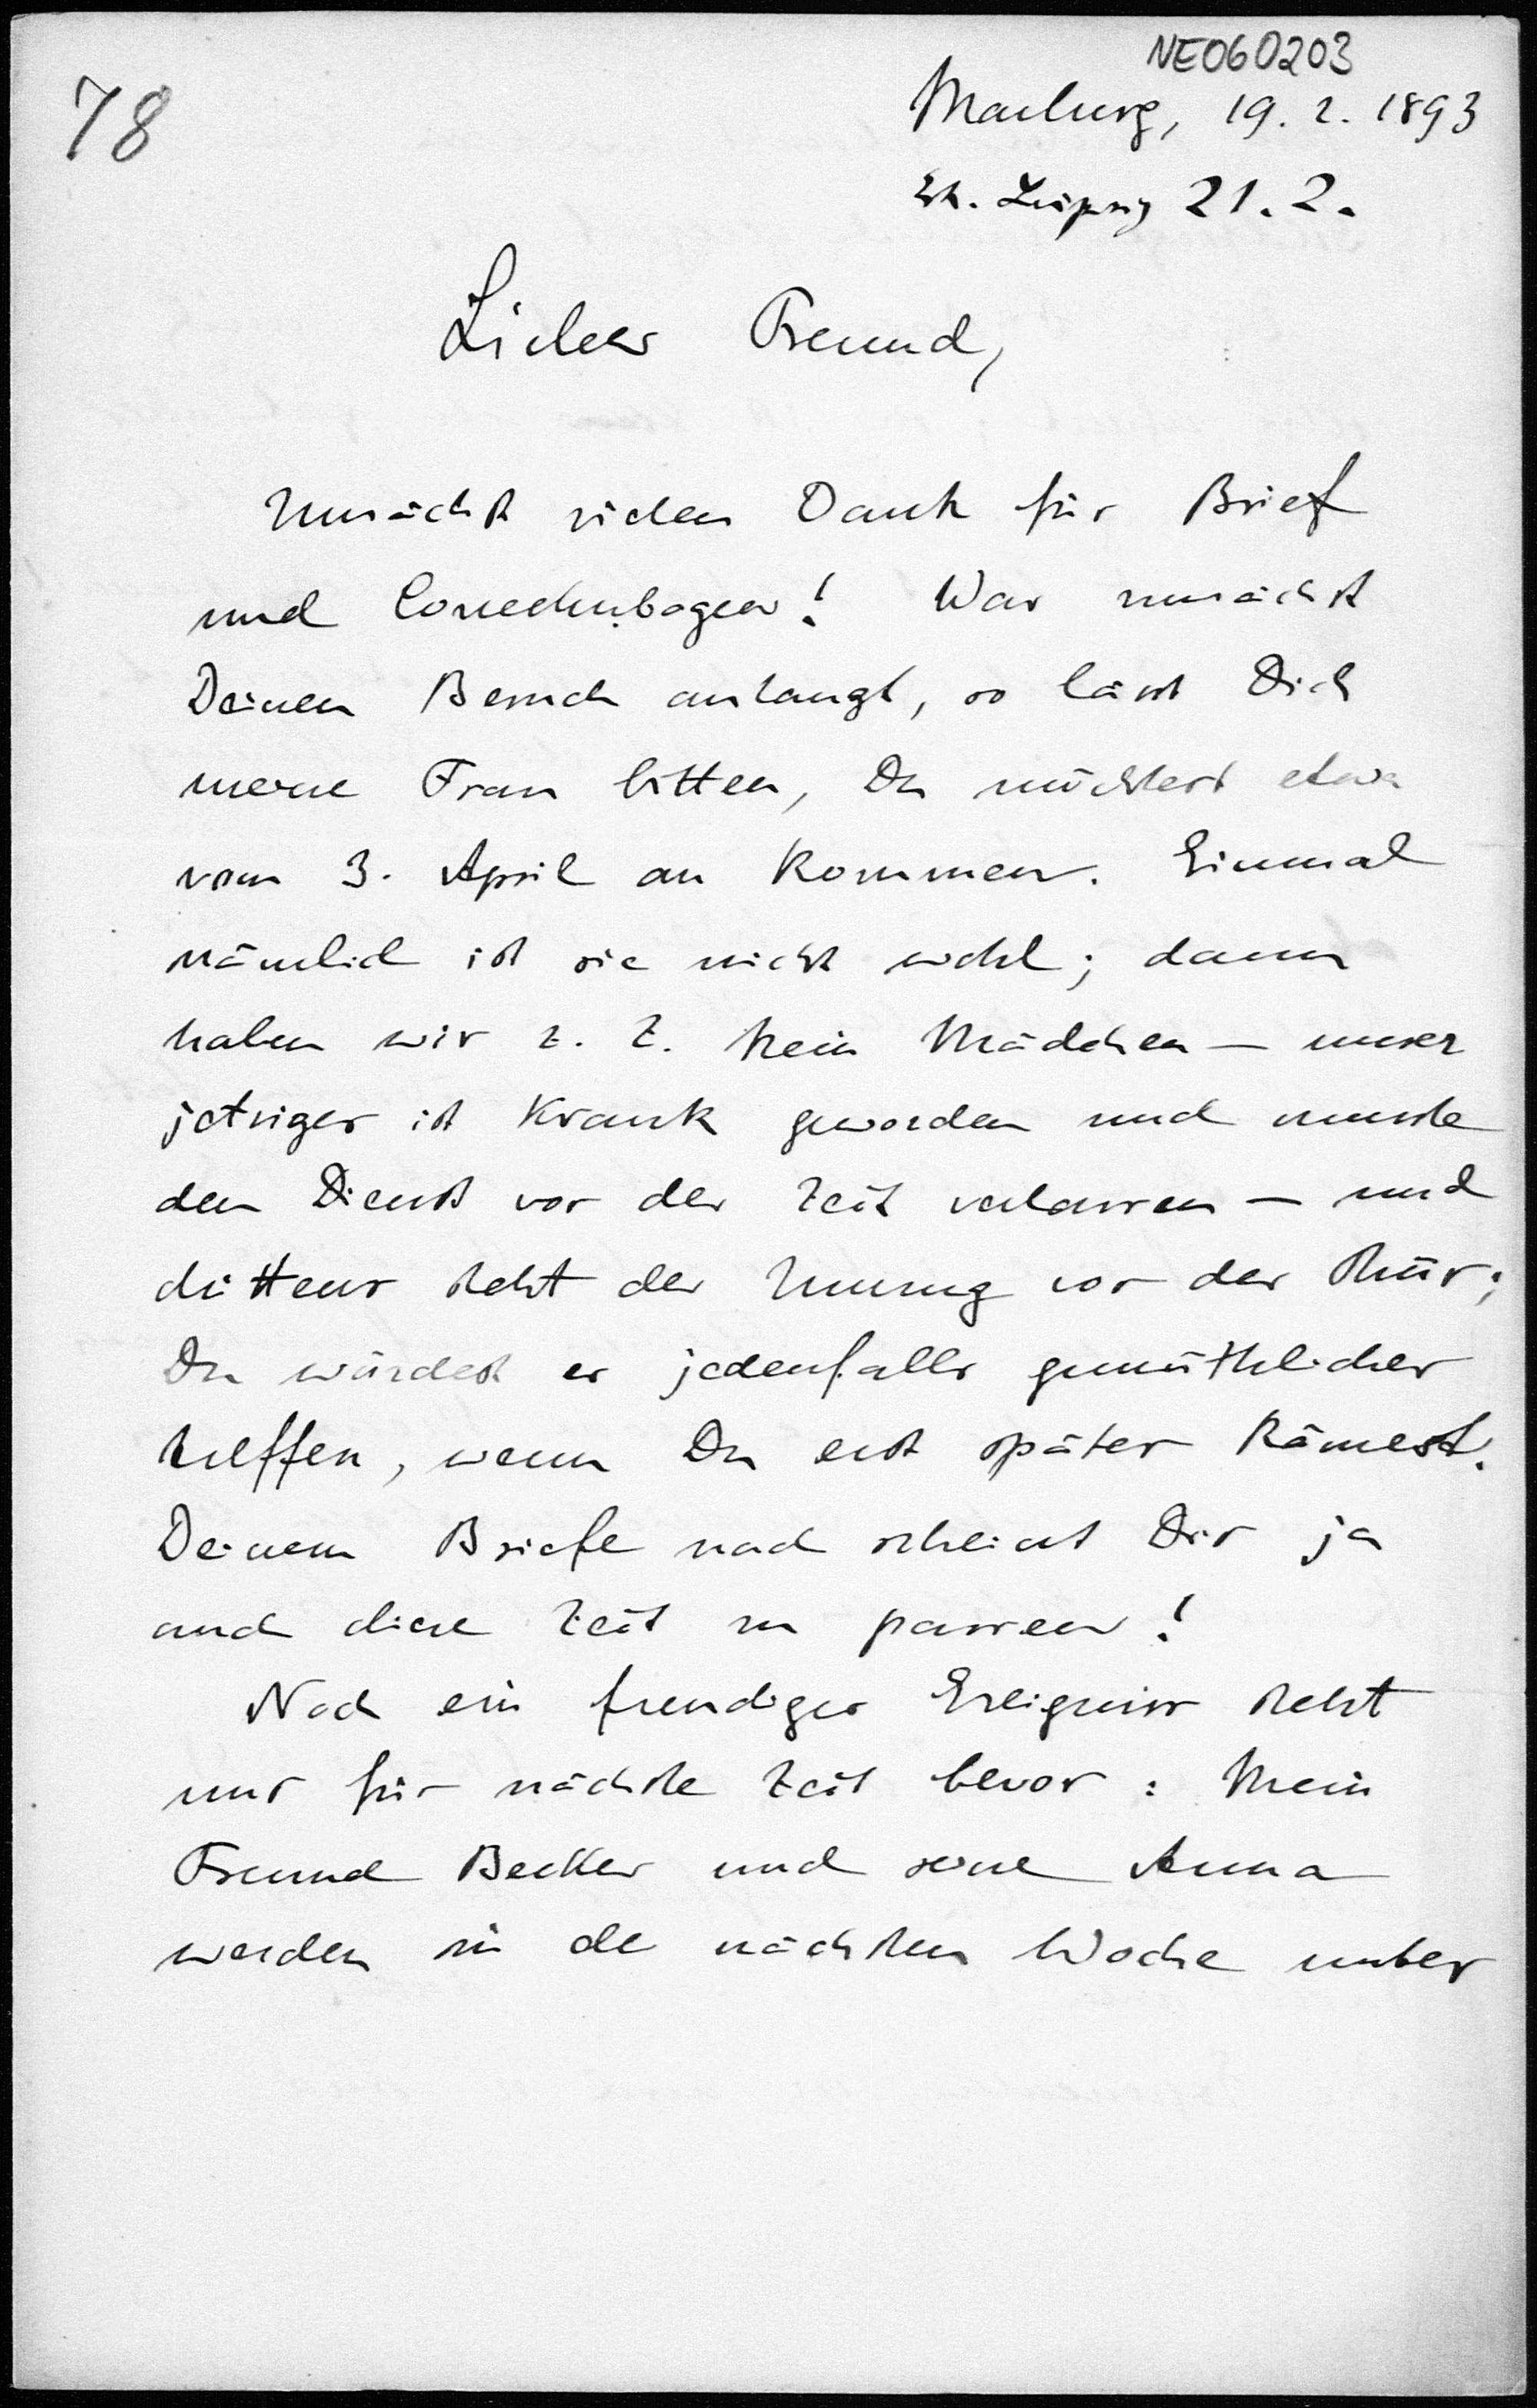 NE060203
78
Marburg, 19. 2. 1893
Eh. Leipzig 21. 2.
Lieber Freund,
Zunächst vielen Dank für Brief
und Correcturbogen! Was zunächst
Deinen Besuch anlangt, so lässt Dich
meine Frau bitten, Du möchtest etwa
vom 3. April an kommen. Einmal
nämlich ist sie nicht wohl; dann
haben wir z. Z. kein Mädchen – unser
jetziges ist krank geworden und musste
den Dienst vor der Zeit verlassen – und
drittens steht der Umzug vor der Thür;
Du würdest es jedenfalls gemüthlicher
treffen, wenn Du erst später kämest.
Deinem Briefe nach scheint Dir ja
auch diese Zeit zu passen!
Noch ein freudiges Ereigniss steht
uns für nächste Zeit bevor: Mein
Freund Becker und seine Anna
werden in de nächsten Woche unter